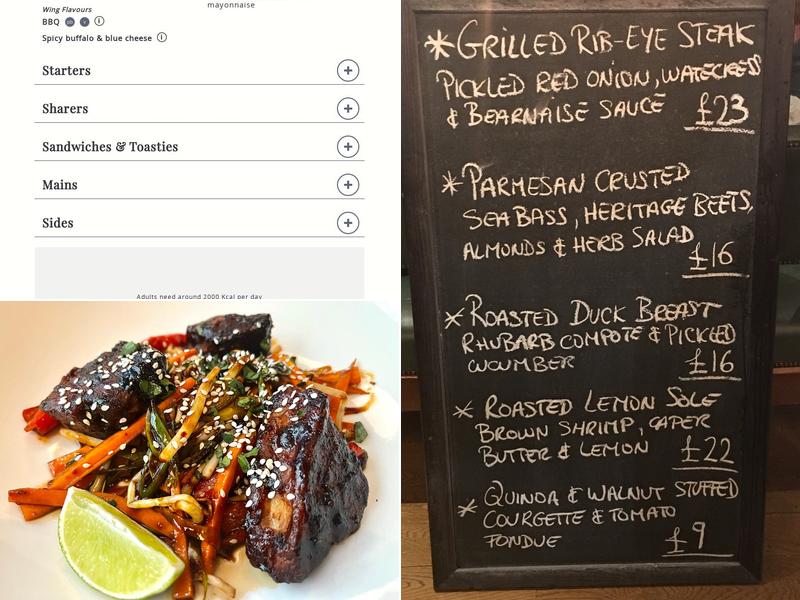 Wing Flavours
mayonnaise
BBQ
Spicy buffalo & blue cheese
Starters
Sharers
Sandwiches & Toasties
Mains
Sides
Adults need around 2000 Kcal per day
*GRILLED RIB-EYE STEAK
PICKLED RED ONION, WATECRESS
& BEARNAISE SAUCE £23
*PARMESAN CRUSTED
SEA BASS, HERITAGE BEETS,
ALMONDS & HERB SALAD
£16
*ROASTED DUCK BREAST
RHUBARB COMPOTE & PICKLED
CUCUMBER £16
* ROASTED LEMON SOLE
BROWN SHRIMP, CAPER
BUTTER & LEMON £22
* QUINOA & WALNUT STUFFED
COURGETTE & TOMATO
FONDUE £9